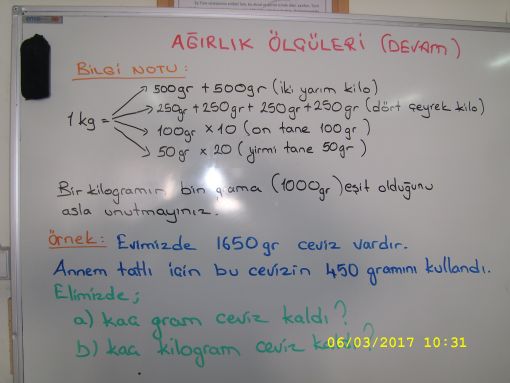 AĞIRLIK ÖLÇÜLERİ (DEVAM)
BİLGİ NOTU:
1 kg = 500gr + 500gr (iki yarım kilo)
250gr + 250gr + 250gr + 250gr (dört çeyrek kilo)
100gr x 10 (on tane 100gr)
50gr x 20 (yirmi tane 50gr)
Bir kilogramın bin grama (1000gr) eşit olduğunu
asla unutmayınız.
Örnek: Evimizde 1650 gr ceviz vardır.
Annem tatlı için bu cevizin 450 gramını kullandı.
Elimizde;
a) kaç gram ceviz kaldı?
b) kaç kilogram ceviz kaldı?
06/03/2017 10:31